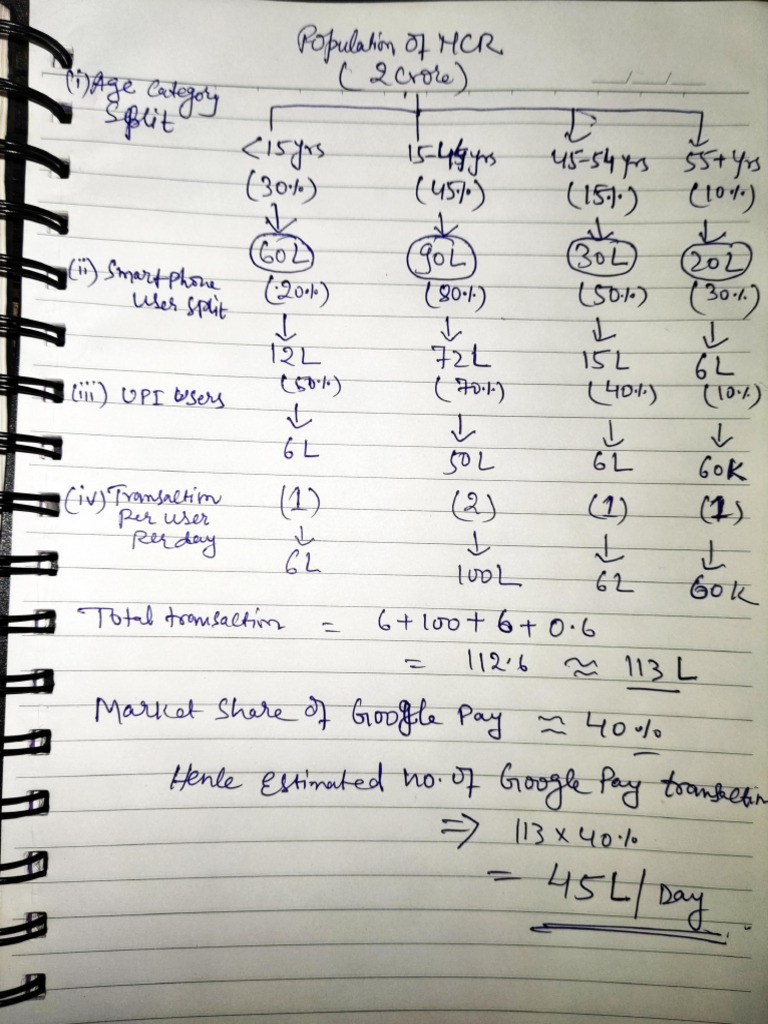 Population of MCR
(2 crore)
(i) Age Category Split
<15yrs 15-44yrs 45-54yrs 55+ yrs
(30%) (45%) (15%) (10%)
60L 90L 30L 20L
(ii) Smartphone User Split
(20%) (80%) (50%) (30%)
12L 72L 15L 6L
(iii) UPI Users
(50%) (70%) (40%) (10%)
6L 50L 6L 60K
(iv) Transaction Per user Per day
(1) (2) (1) (1)
6L 100L 6L 60K
Total transaction = 6+100+6+0.6
= 112.6 ≈ 113 L
Market Share of Google Pay ≈ 40%
Hence Estimated no. of Google Pay transaction
⇒ 113 x 40%
= 45L/Day